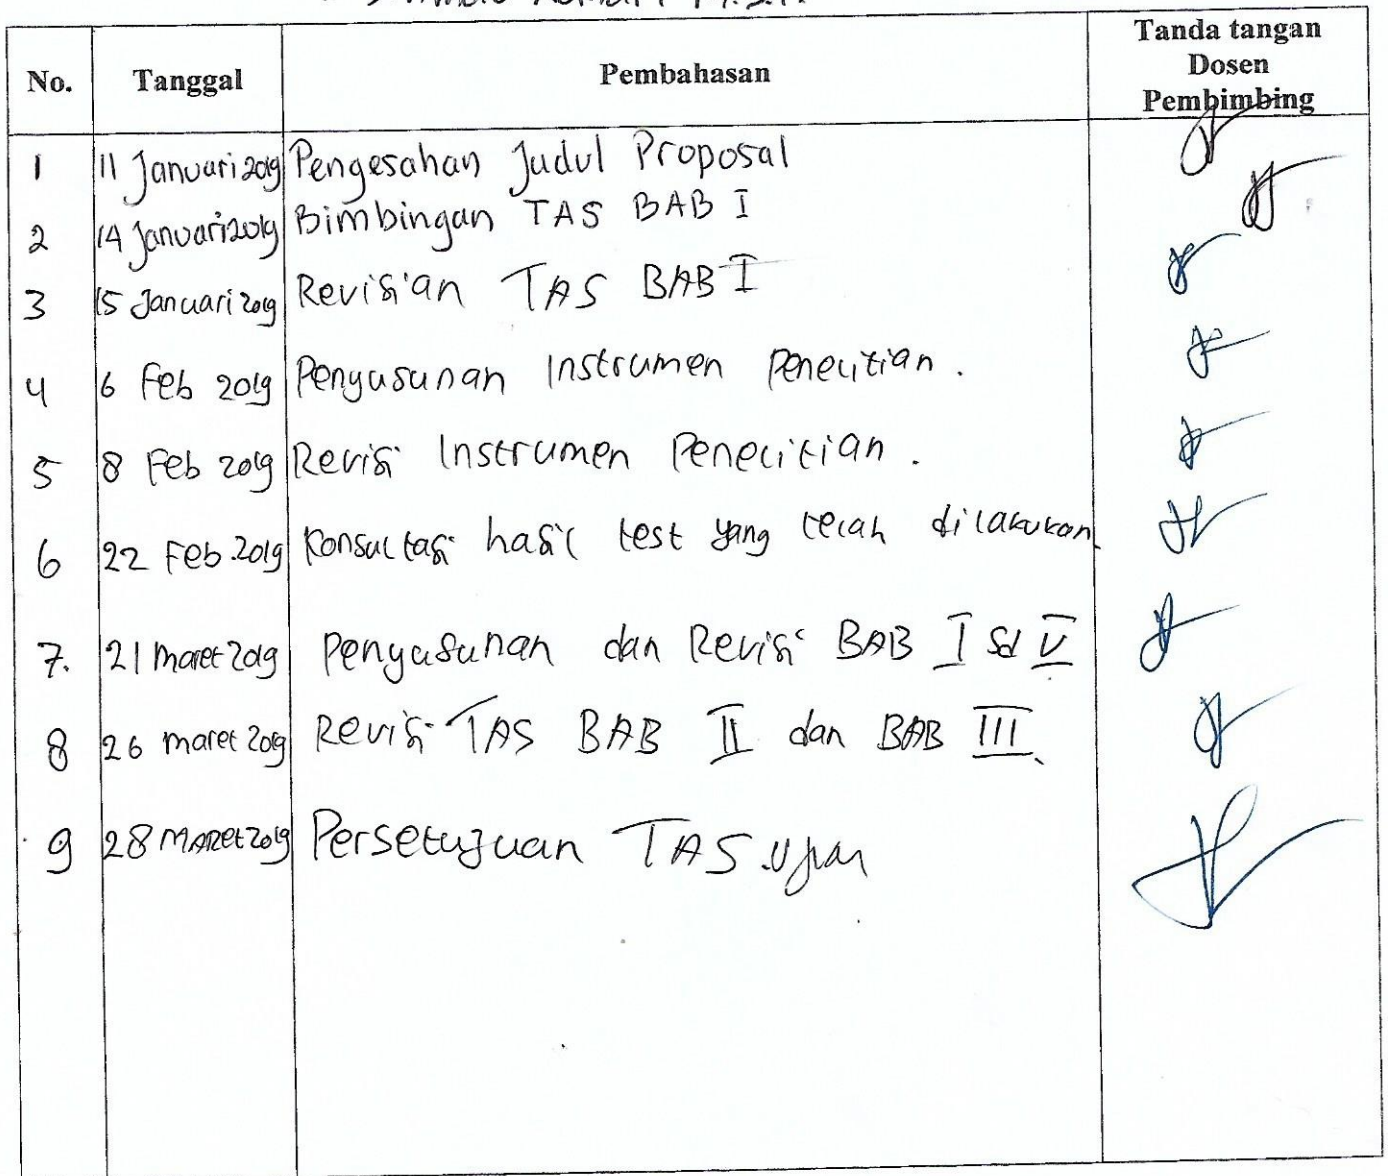 Tanda tangan
No. Tanggal Pembahasan Dosen
Pembimbing
1 11 Januari 2019 Pengesahan Judul Proposal
2 14 Januari 2019 Bimbingan TAS BAB I
3 15 Januari 2019 Revisian TAS BAB I
4 6 Feb 2019 Penyusunan Instrumen Penelitian.
5 8 Feb 2019 Revisi Instrumen Penelitian.
6 22 Feb. 2019 Konsultasi hasil test yang telah dilakukan.
7. 21 Maret 2019 Penyusunan dan Revisi BAB I sd V
8 26 maret 2019 Revisi TAS BAB II dan BAB III.
9 28 MARET 2019 Persetujuan TAS Ujian